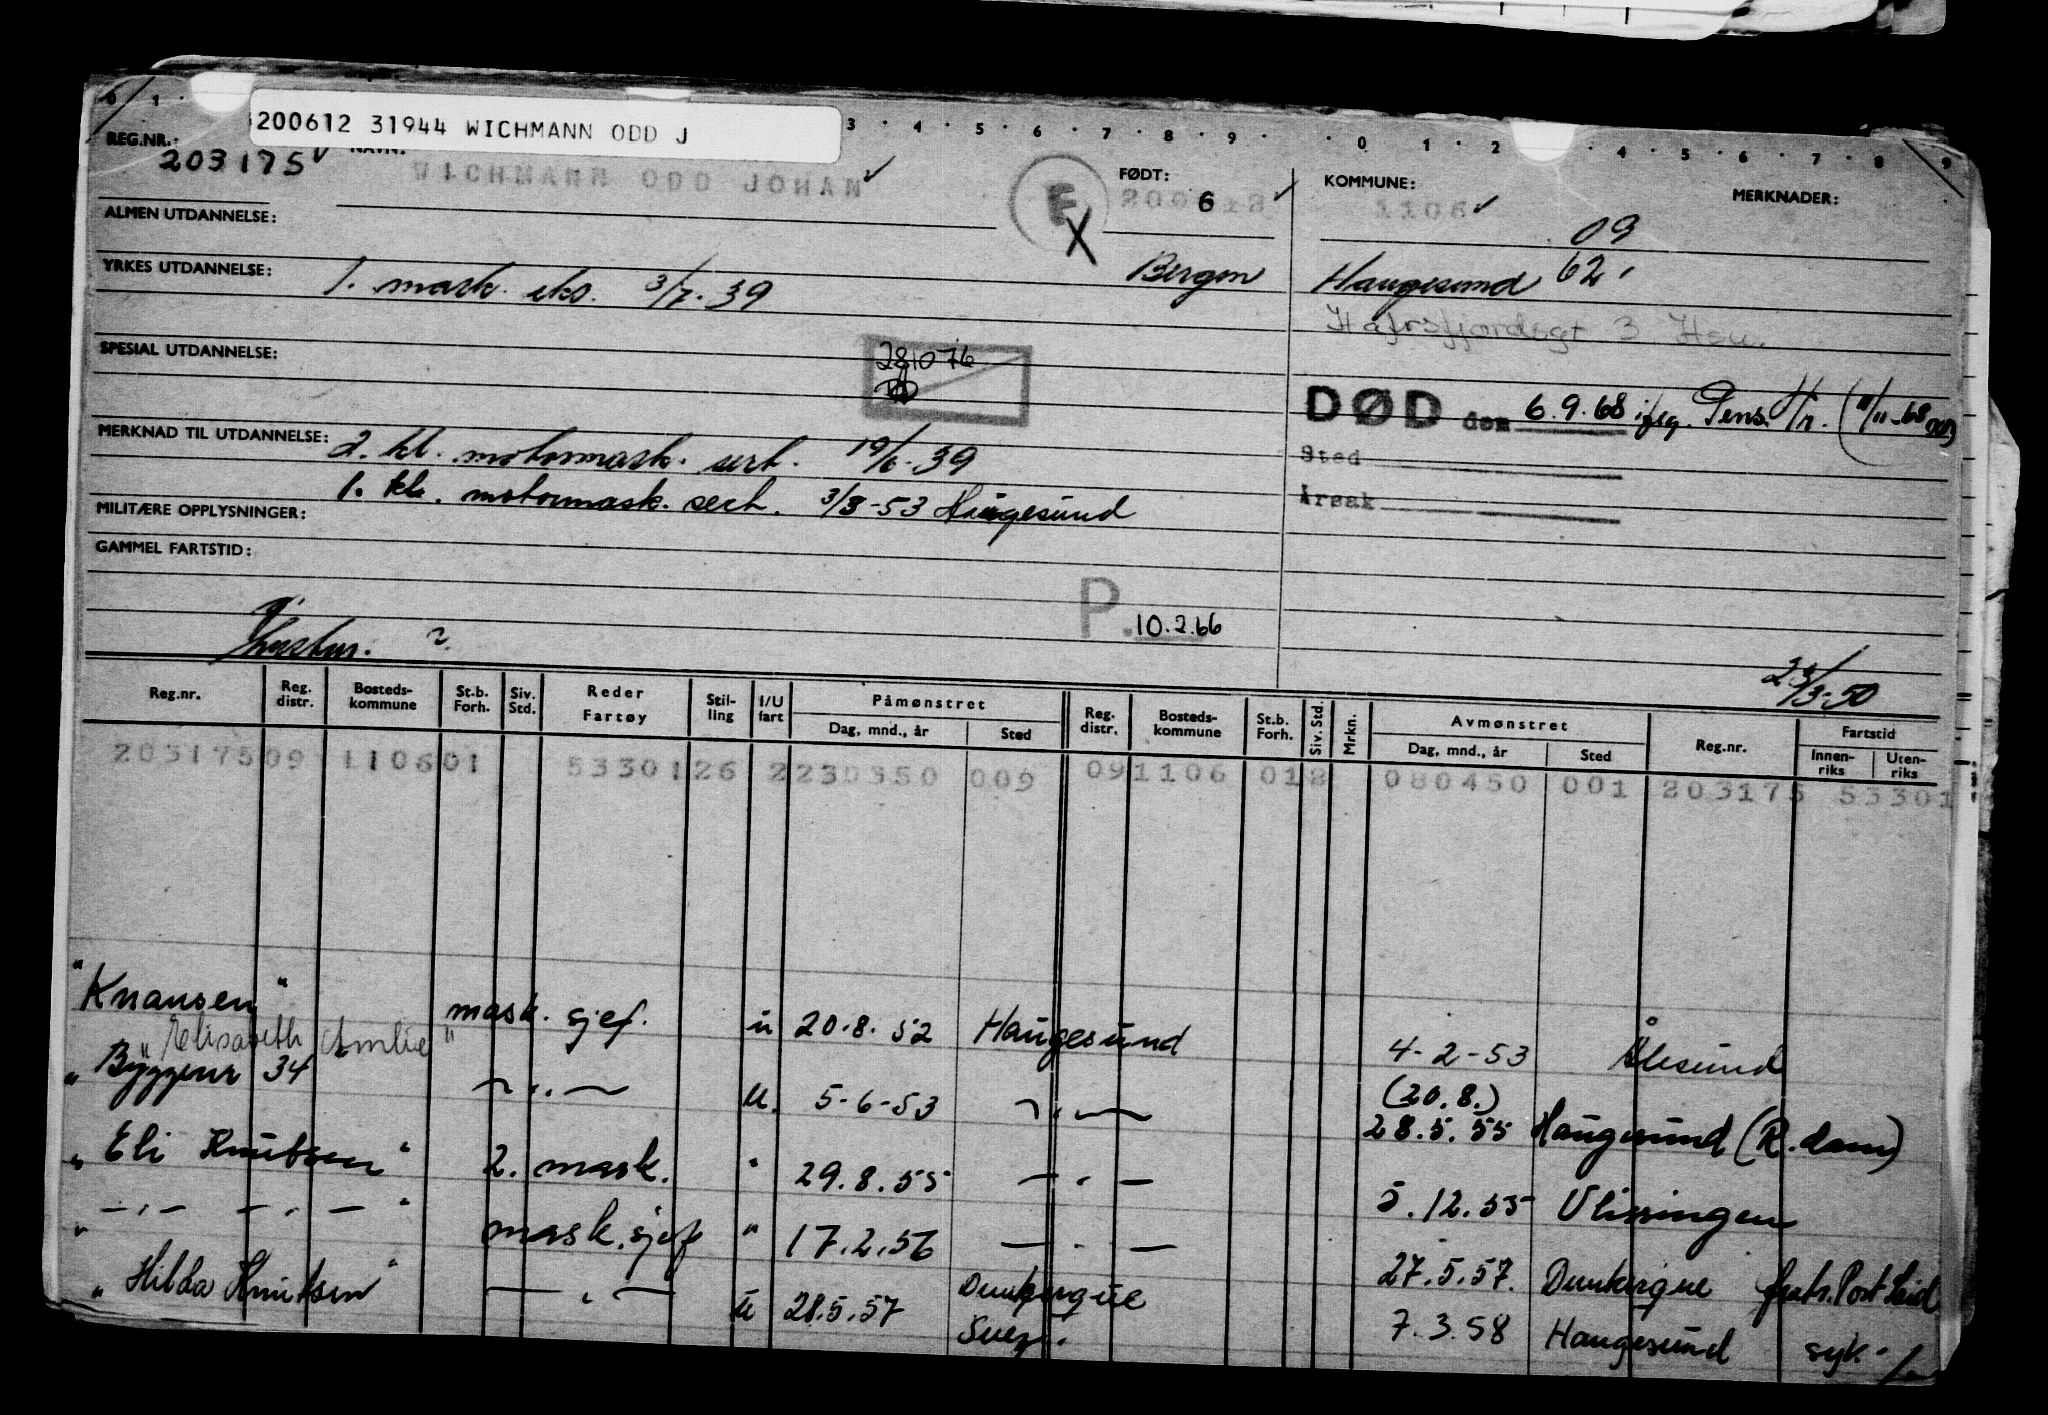 200612 31944 WICHMANN ODD J
0 1 3 4 5 6 7 8 9 0 1 2 4 5 6 7 8 9
REG.NR.: 203175 NAVN: WICHMANN ODD JOHAN E X FØDT: 200612 6 KOMMUNE: 1106 MERKNADER:
ALMEN UTDANNELSE: 09
YRKES UTDANNELSE: 1. mask. eks. 3/7-39 Bergen Haugesund 62
Hafrsfjordsgt 3 Hsu.
SPESIAL UTDANNELSE: 281076
DØD den 6.9.68 iflg. Pens. tr. (11/11-68
MERKNAD TIL UTDANNELSE: 2. kl. motormask. sert. 19/6-39
Sted
1. kl. motormask. sert. 3/3-53 Haugesund
Årsak
MILITÆRE OPPLYSNINGER:
GAMMEL FARTSTID:
P. 10.2.66
23/3-50
Reg.nr. Reg. distr. Bosteds-kommune St.b. Forh. Siv. Std. Reder Fartøy Stil-ling I/U fart Påmønstret Dag, mnd., år Sted Reg. distr. Bosteds-kommune St.b. Forh. Siv. Std. Mrkn. Avmønstret Dag, mnd., år Sted Reg.nr. Fartstid Innen-riks Uten-riks
203175 09 1106 01 5330126 2 230350 009 09 1106 01 2 080450 001 203175 53301
"Knausen" mask. sjef. u 20.8.52 Haugesund 4-2-53 Ålesund
"Elisabeth Amlie"
"Byggens 34 - " - u. 5-6-53 - " - (20.8.) 28.5.55 Haugesund (R.dam)
"Eli Knutsen" 2. mask. " 29.8.55 - " - 5.12.55 Vlissingen
" - " - - " - " mask. sjef " 17.2.56 - " - 27.5.57. Dunkerque fratr. Port Said
"Hilda Knutsen" - " - u 28.5.57 Dunkerque Suez. 7.3.58 Haugesund syk.